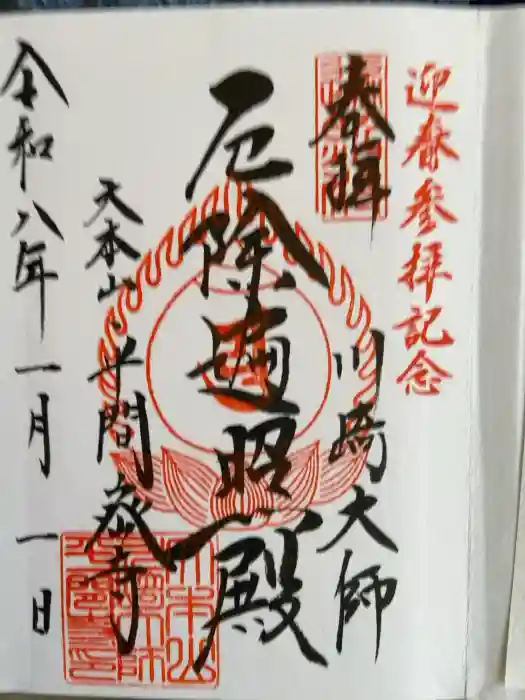 迎春参拝記念
奉拝
川崎大師
厄除遍照殿
大本山 平間寺
令和八年一月一日